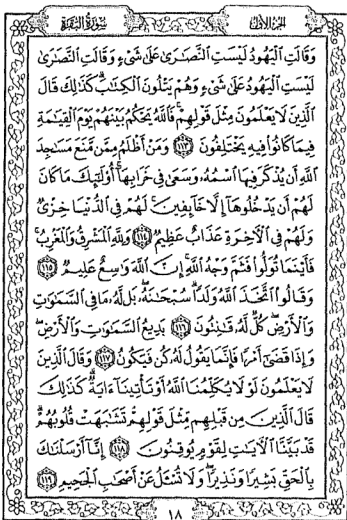 الجزء الأول
سورة البقرة
وَقَالَتِ الْيَهُودُ لَيْسَتِ النَّصَارَىٰ عَلَىٰ شَىْءٍ وَقَالَتِ النَّصَارَىٰ
لَيْسَتِ الْيَهُودُ عَلَىٰ شَىْءٍ وَهُمْ يَتْلُونَ الْكِتَابَ كَذَٰلِكَ قَالَ
الَّذِينَ لَا يَعْلَمُونَ مِثْلَ قَوْلِهِمْ فَاللَّهُ يَحْكُمُ بَيْنَهُمْ يَوْمَ الْقِيَامَةِ
فِيمَا كَانُوا فِيهِ يَخْتَلِفُونَ ١١٣ وَمَنْ أَظْلَمُ مِمَّن مَّنَعَ مَسَاجِدَ
اللَّهِ أَن يُذْكَرَ فِيهَا اسْمُهُ وَسَعَىٰ فِي خَرَابِهَا أُولَٰئِكَ مَا كَانَ
لَهُمْ أَن يَدْخُلُوهَا إِلَّا خَائِفِينَ لَهُمْ فِي الدُّنْيَا خِزْىٌ
وَلَهُمْ فِي الْآخِرَةِ عَذَابٌ عَظِيمٌ ١١٤ وَلِلَّهِ الْمَشْرِقُ وَالْمَغْرِبُ
فَأَيْنَمَا تُوَلُّوا فَثَمَّ وَجْهُ اللَّهِ إِنَّ اللَّهَ وَاسِعٌ عَلِيمٌ ١١٥
وَقَالُوا اتَّخَذَ اللَّهُ وَلَدًا سُبْحَانَهُ بَل لَّهُ مَا فِي السَّمَاوَاتِ
وَالْأَرْضِ كُلٌّ لَّهُ قَانِتُونَ ١١٦ بَدِيعُ السَّمَاوَاتِ وَالْأَرْضِ
وَإِذَا قَضَىٰ أَمْرًا فَإِنَّمَا يَقُولُ لَهُ كُن فَيَكُونُ ١١٧ وَقَالَ الَّذِينَ
لَا يَعْلَمُونَ لَوْلَا يُكَلِّمُنَا اللَّهُ أَوْ تَأْتِينَا آيَةٌ كَذَٰلِكَ
قَالَ الَّذِينَ مِن قَبْلِهِم مِّثْلَ قَوْلِهِمْ تَشَابَهَتْ قُلُوبُهُمْ
قَدْ بَيَّنَّا الْآيَاتِ لِقَوْمٍ يُوقِنُونَ ١١٨ إِنَّا أَرْسَلْنَاكَ
بِالْحَقِّ بَشِيرًا وَنَذِيرًا وَلَا تُسْأَلُ عَنْ أَصْحَابِ الْجَحِيمِ ١١٩
١٨